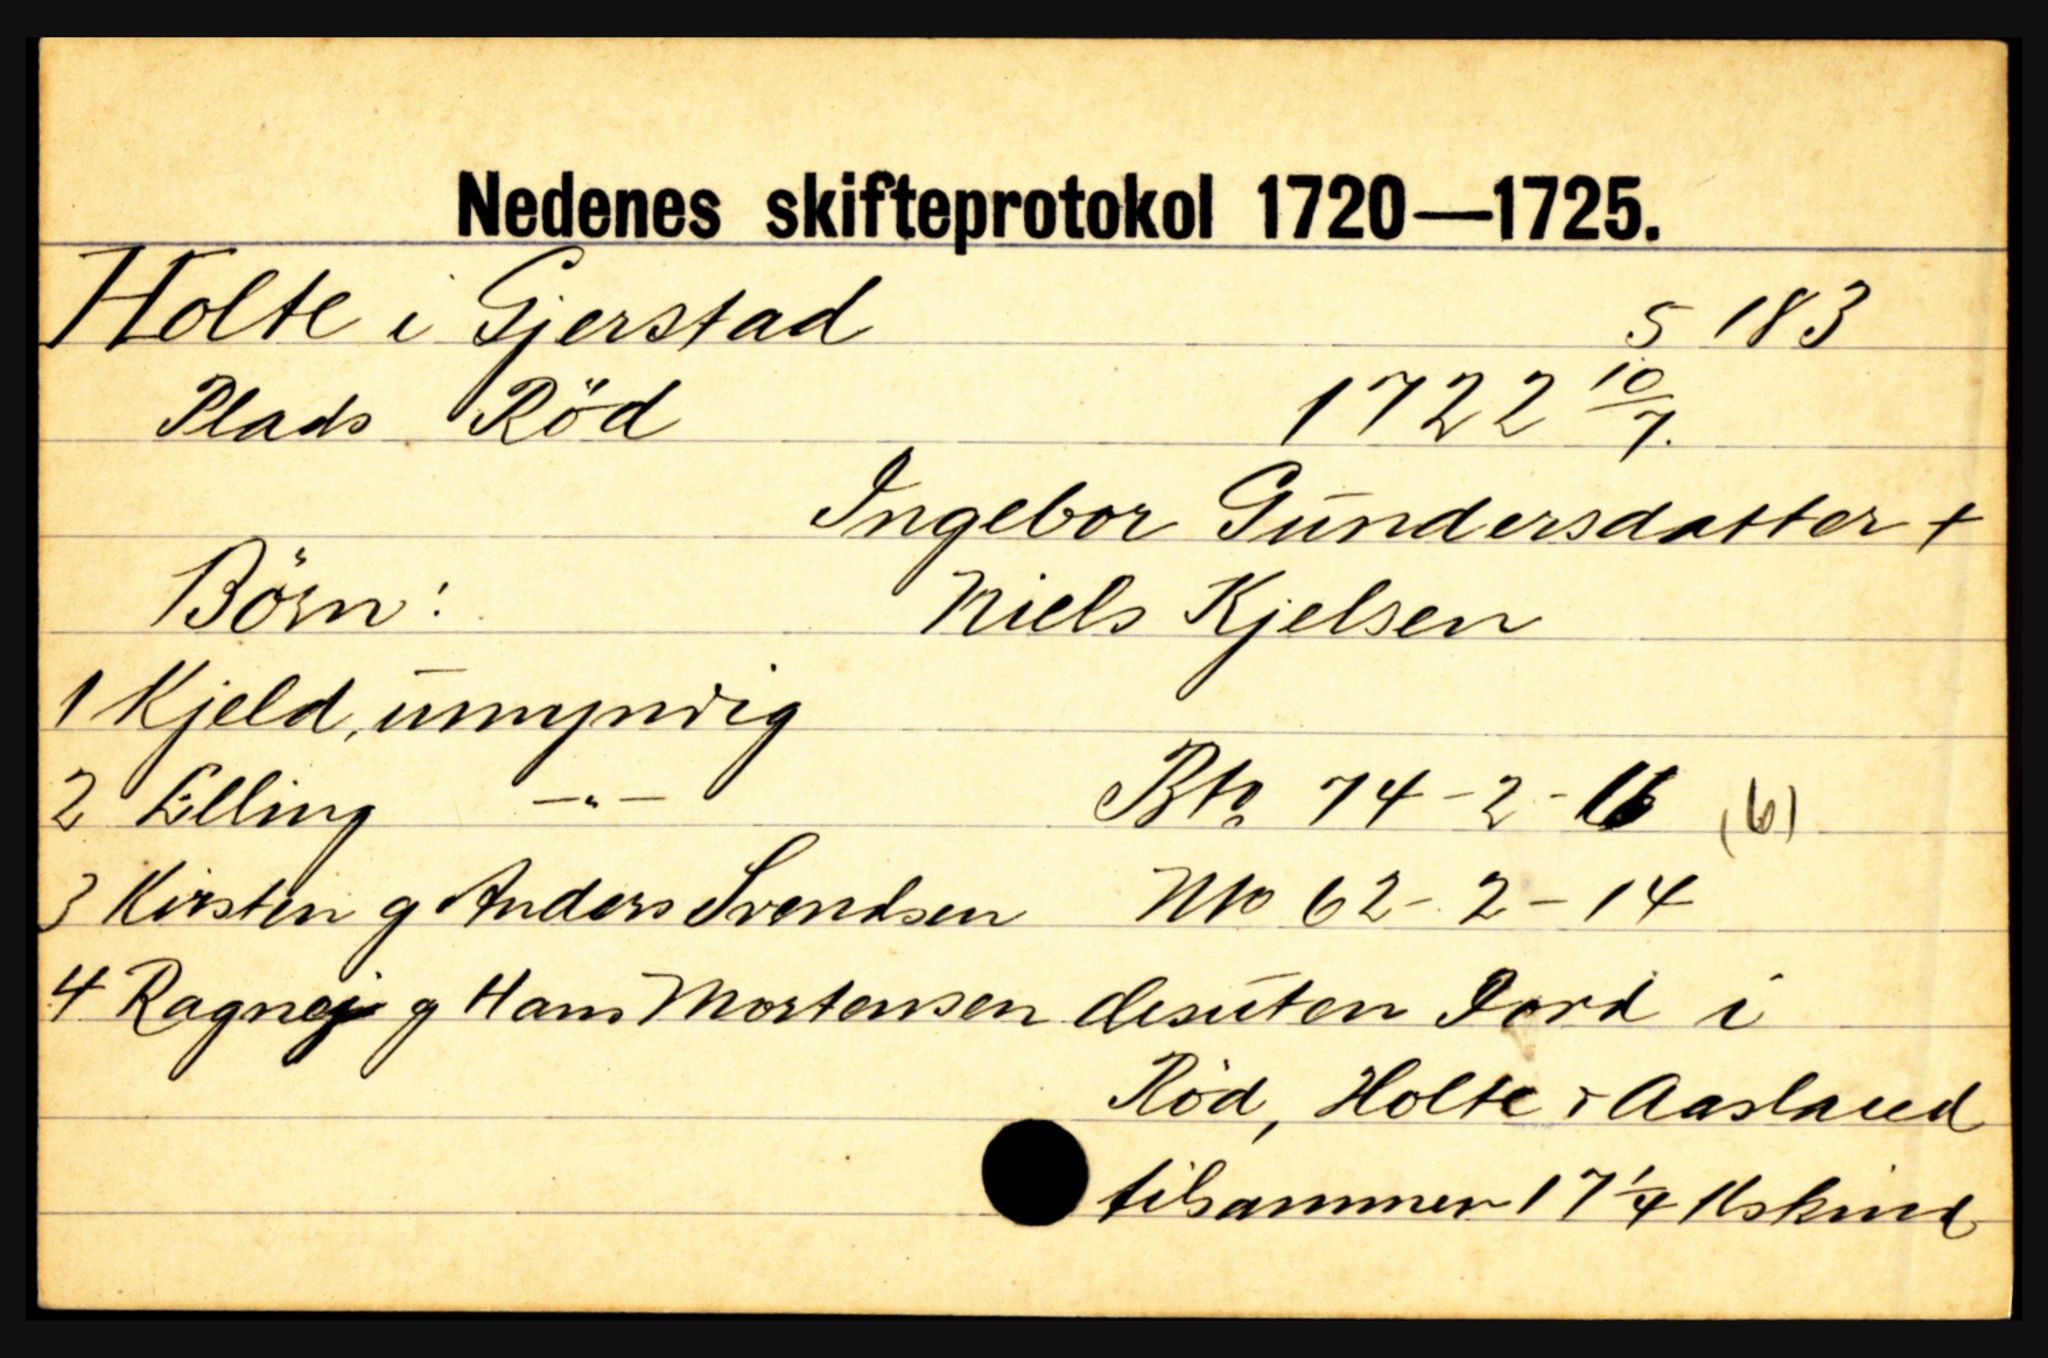 Nedenes skifteprotokol 1720—1725.
Holte i Gjerstad s 183
Plads Röd 1722 10/7.
Ingebor Gundersdatter +
Börn: Niels Kjelsen
1 Kjeld, umyndig
2 Elling —"— Bto. 74-2-16 (6)
3 Kirsten g Anders Svendsen Nto 62-2-14
4 Ragnej g Hans Mortensen desuten Jord i
Röd, Holte & Aasland
tilsammen 17 1/4 Kskind